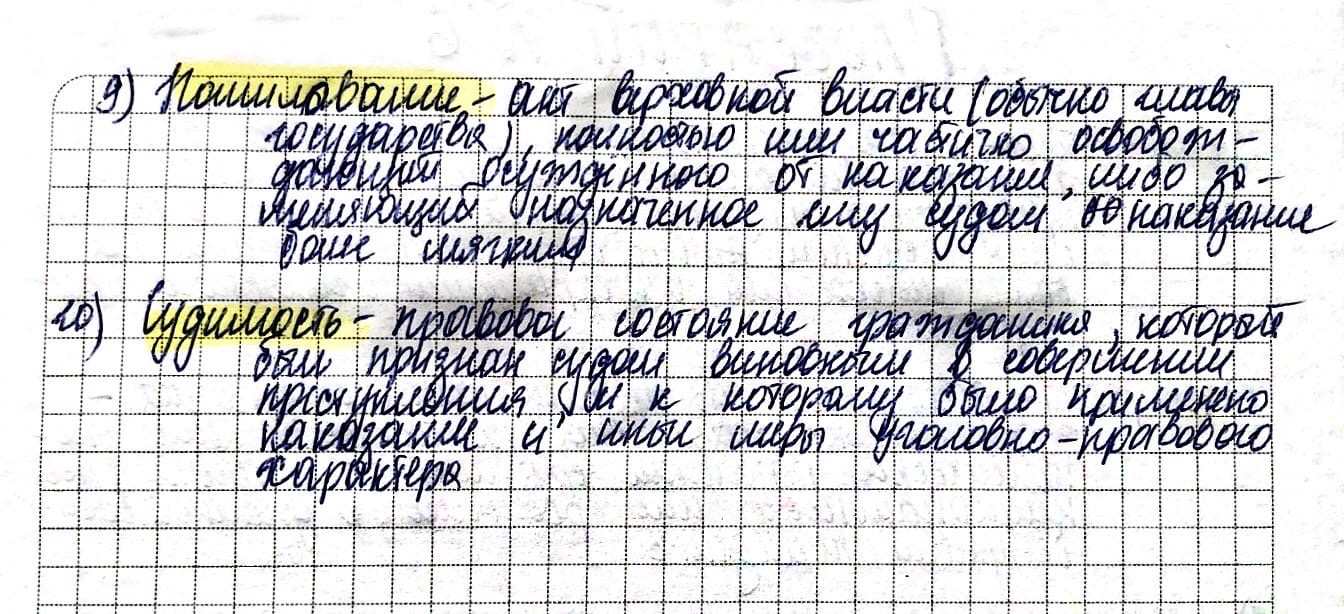 9) Помилование - акт верховной власти (обычно главы
государства), полностью или частично освобож-
дающий осужденного от наказания, либо за-
меняющий назначенное ему судом наказание
более мягким
10) Судимость - правовое состояние гражданина, который
был признан судом виновным в совершении
преступления, и к которому было применено
наказание и иные меры уголовно-правового
характера